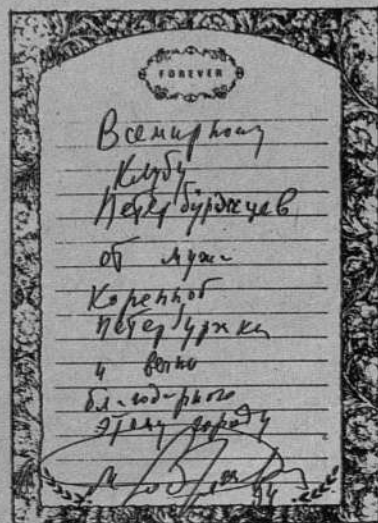 FOREVER
Всемирному
Клубу
Петербуржцев
от мужа
Коренной
петербуржки
и вечно
благодарного
этому городу
94